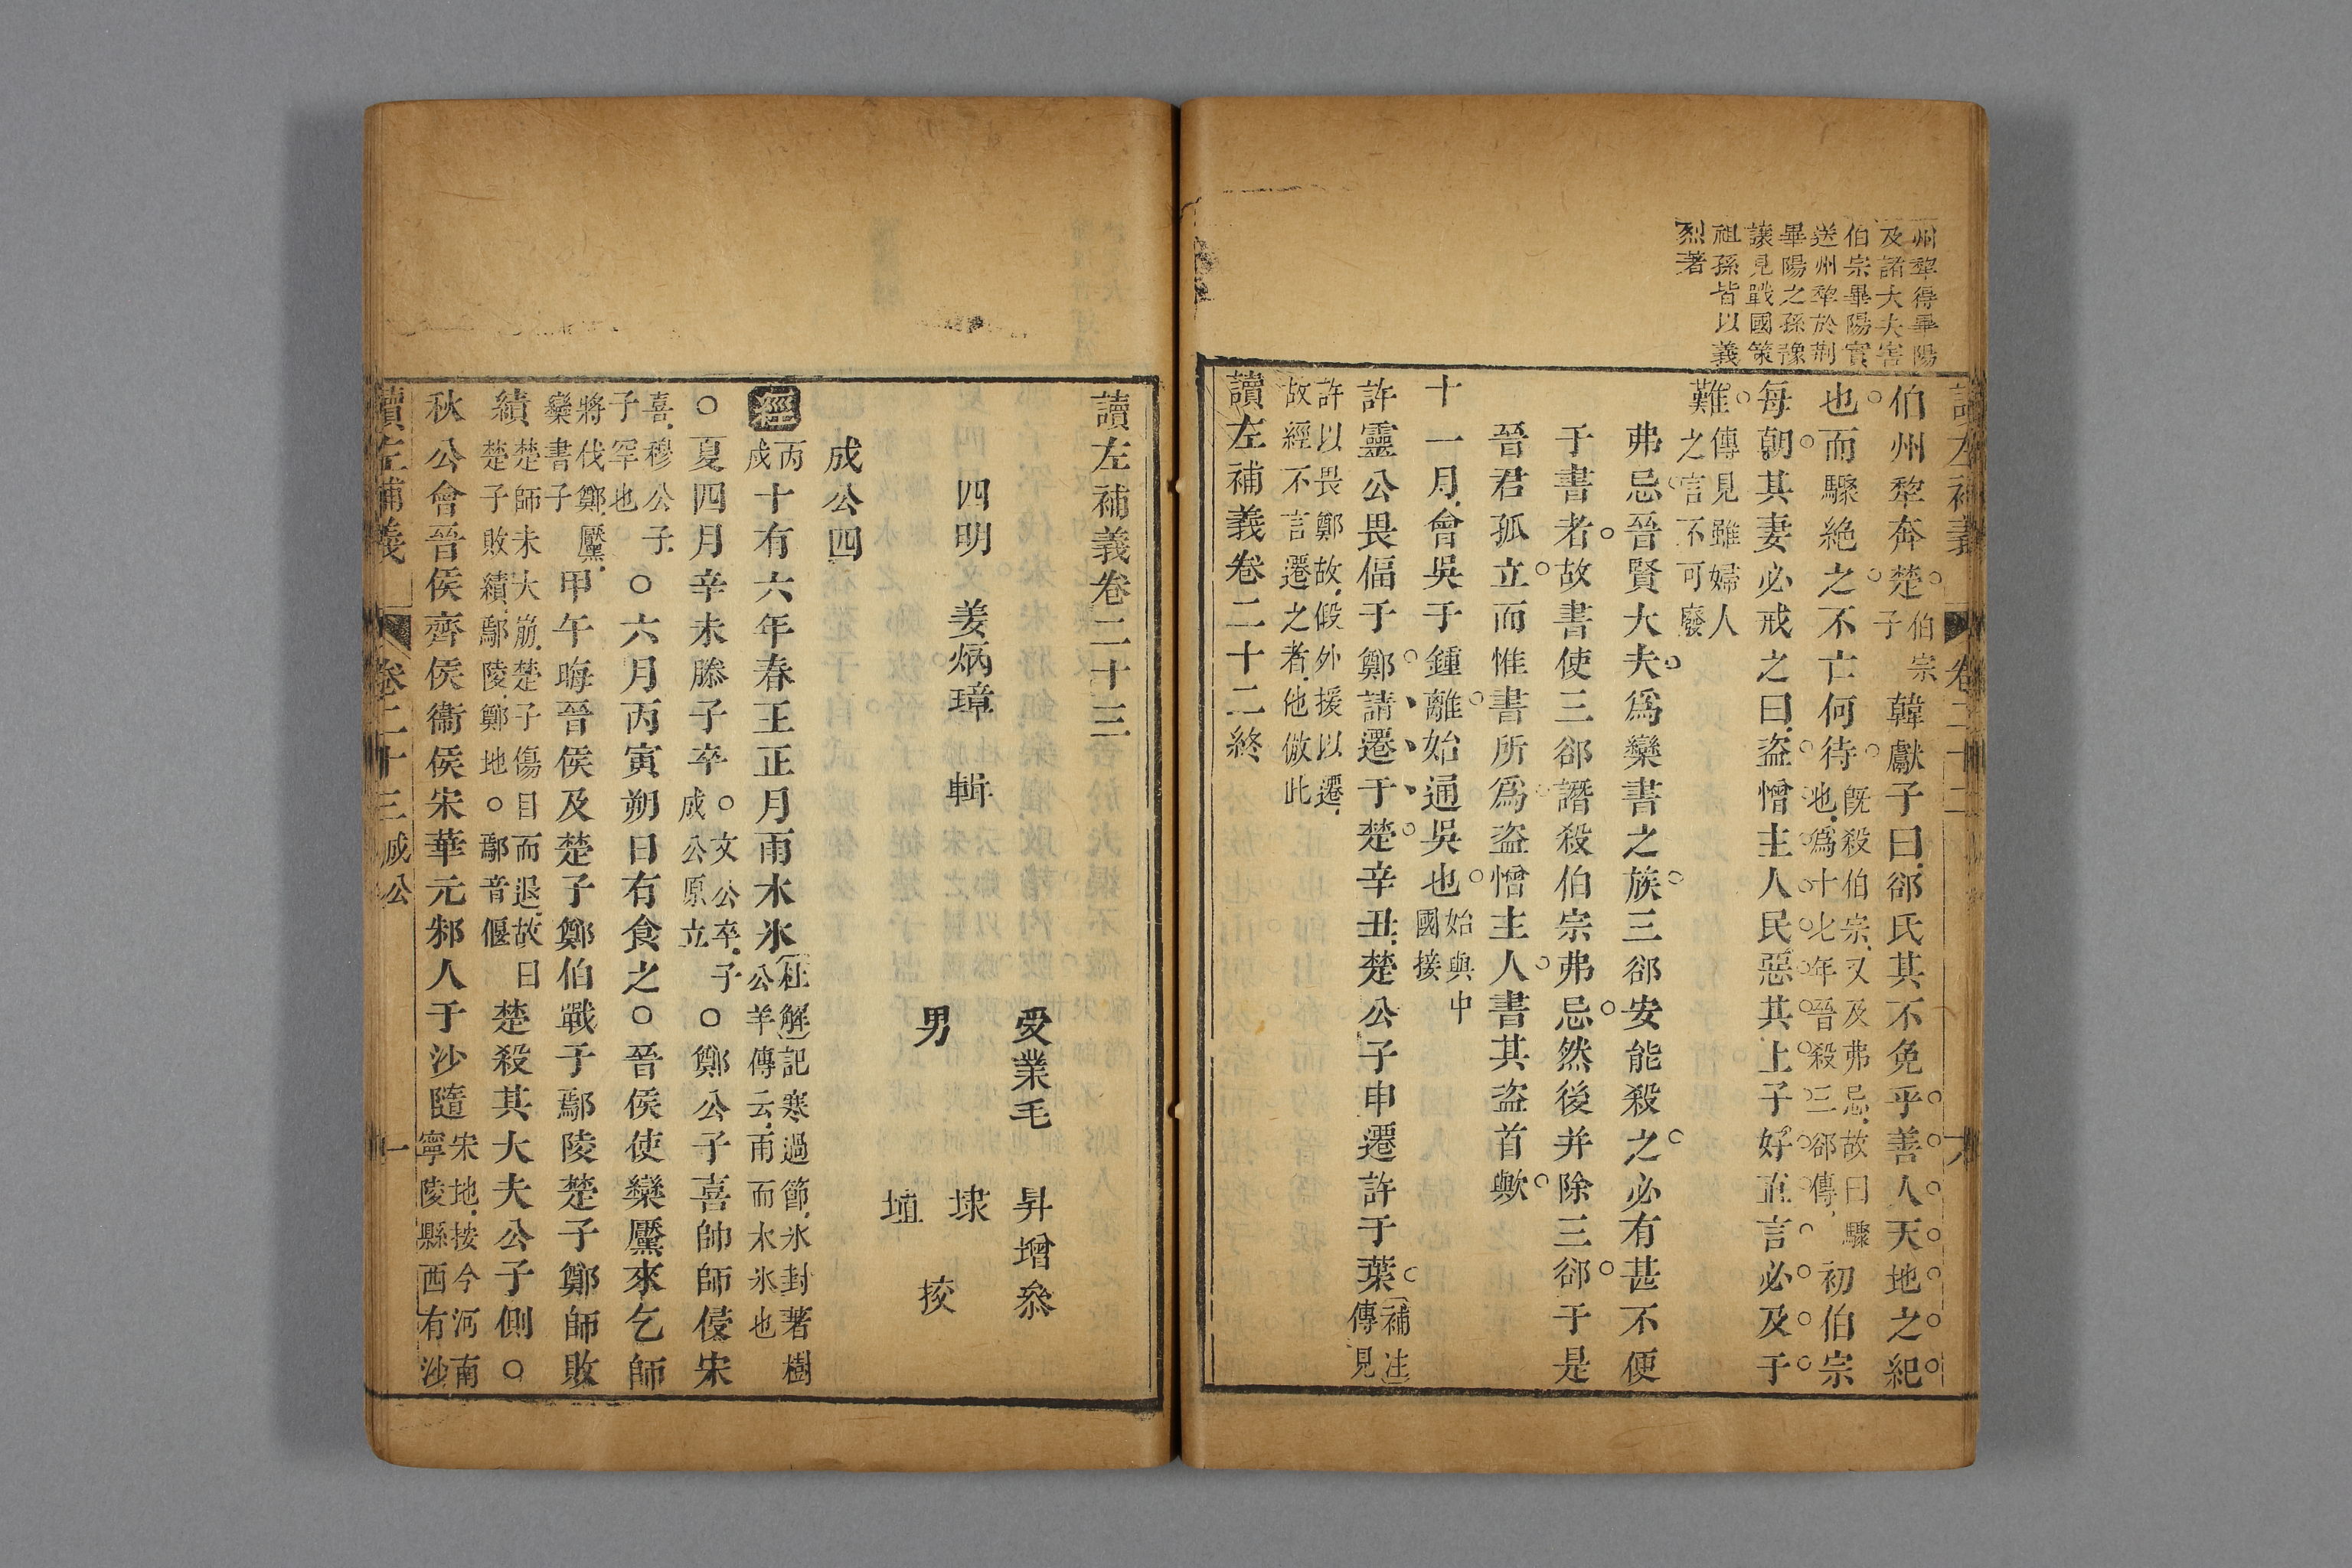 州犂得畢陽
及諸大夫害
伯宗畢陽實
送州犂於荆
畢陽之孫豫
讓見戰國策
祖孫皆以義
烈著
讀左補義 卷二十二 六
伯州犂奔楚伯宗子韓獻子曰郤氏其不免乎善人天地之紀
也而驟絶之不亡何待既殺伯宗又及弗忌故曰驟也爲十七年晉殺三郤傳初伯宗
每朝其妻必戒之曰盗憎主人民惡其上子好直言必及于
難傳見雖婦人之言不可廢
弗忌晉賢大夫爲欒書之族三郤安能殺之必有甚不便
于書者故書使三郤譖殺伯宗弗忌然後并除三郤于是
晉君孤立而惟書所爲盗憎主人書其盗首歟
十一月會吳于鍾離始通吳也始與中國接
許靈公畏偪于鄭請遷于楚辛丑楚公子申遷許于葉補注傳見
許以畏鄭故假外援以遷故經不言遷之者他倣此
讀左補義卷二十二終
讀左補義卷二十三
受業毛 昇增叅
四明 姜炳璋 輯
男 埭 埴 挍
成公四
經丙戌十有六年春王正月雨木氷杜解記寒過節氷封著樹公羊傳云雨而木氷也
○夏四月辛未滕子卒○文公卒子成公原立○鄭公子喜帥師侵宋
喜穆公子子罕也○六月丙寅朔日有食之○晉侯使欒黶來乞師
將伐鄭黶欒書子甲午晦晉侯及楚子鄭伯戰于鄢陵楚子鄭師敗
績楚師未大崩楚子傷目而退故曰楚子敗績鄢陵鄭地○鄢音偃楚殺其大夫公子側○
秋公會晉侯齊侯衞侯宋華元邾人于沙隨宋地按今河南寧陵縣西有沙
讀左補義 卷二十三 成公 一